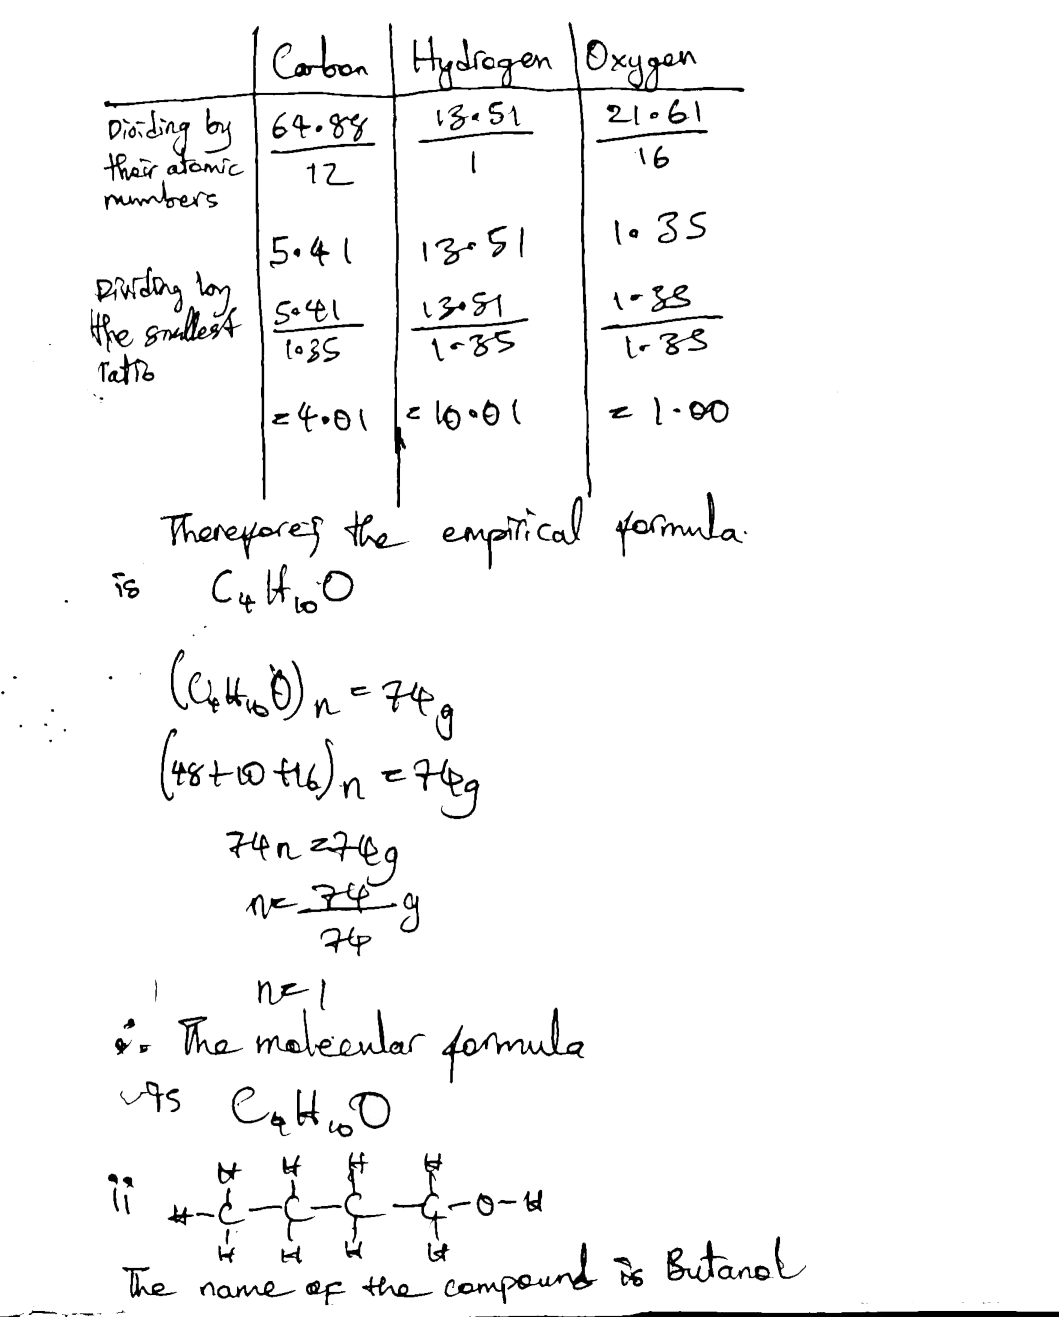 Carbon Hydrogen Oxygen
Dividing by their atomic numbers 64.88/12 13.51/1 21.61/16
5.41 13.51 1.35
Dividing by the smallest ratio 5.41/1.35 13.51/1.35 1.35/1.35
=4.01 =10.01 = 1.00
Therefore, the empirical formula
is C₄H₁₀O
(C₄H₁₀O)n = 74g
(48+10+16)n = 74g
74n = 74g
n = 74/74 g
n = 1
∴ The molecular formula
is C₄H₁₀O
H H H H
ii H-C-C-C-C-O-H
H H H H
The name of the compound is Butanol